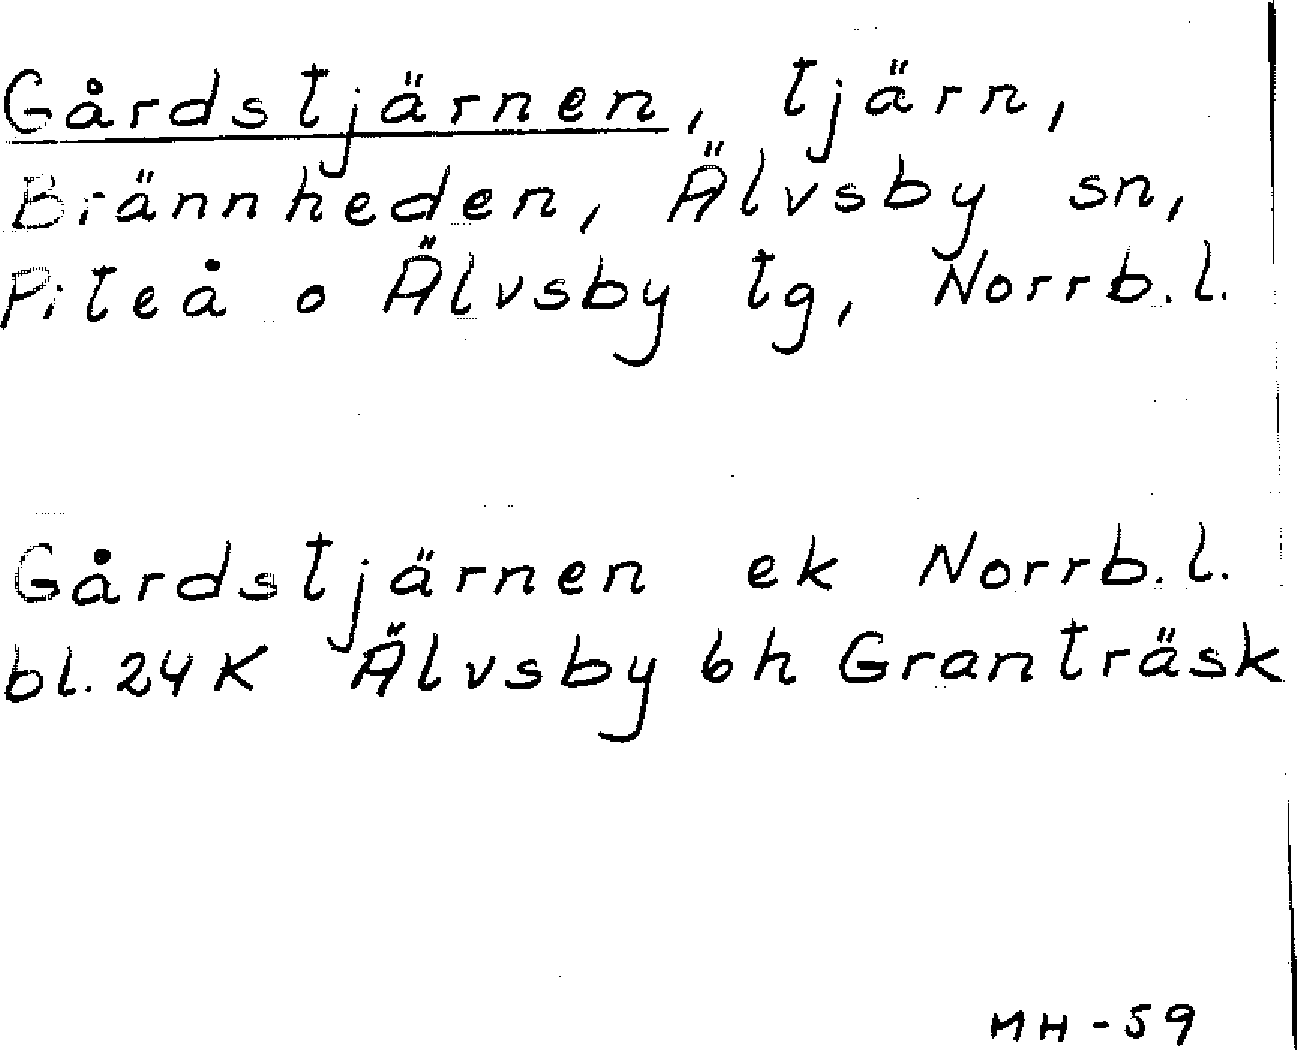 Gårdstjärnen, tjärn,
Brännheden, Älvsby sn,
Piteå o Älvsby tg, Norrb.l.
Gårdstjärnen ek Norrb.l.
bl. 24 K Älvsby 6h Granträsk
MH-59